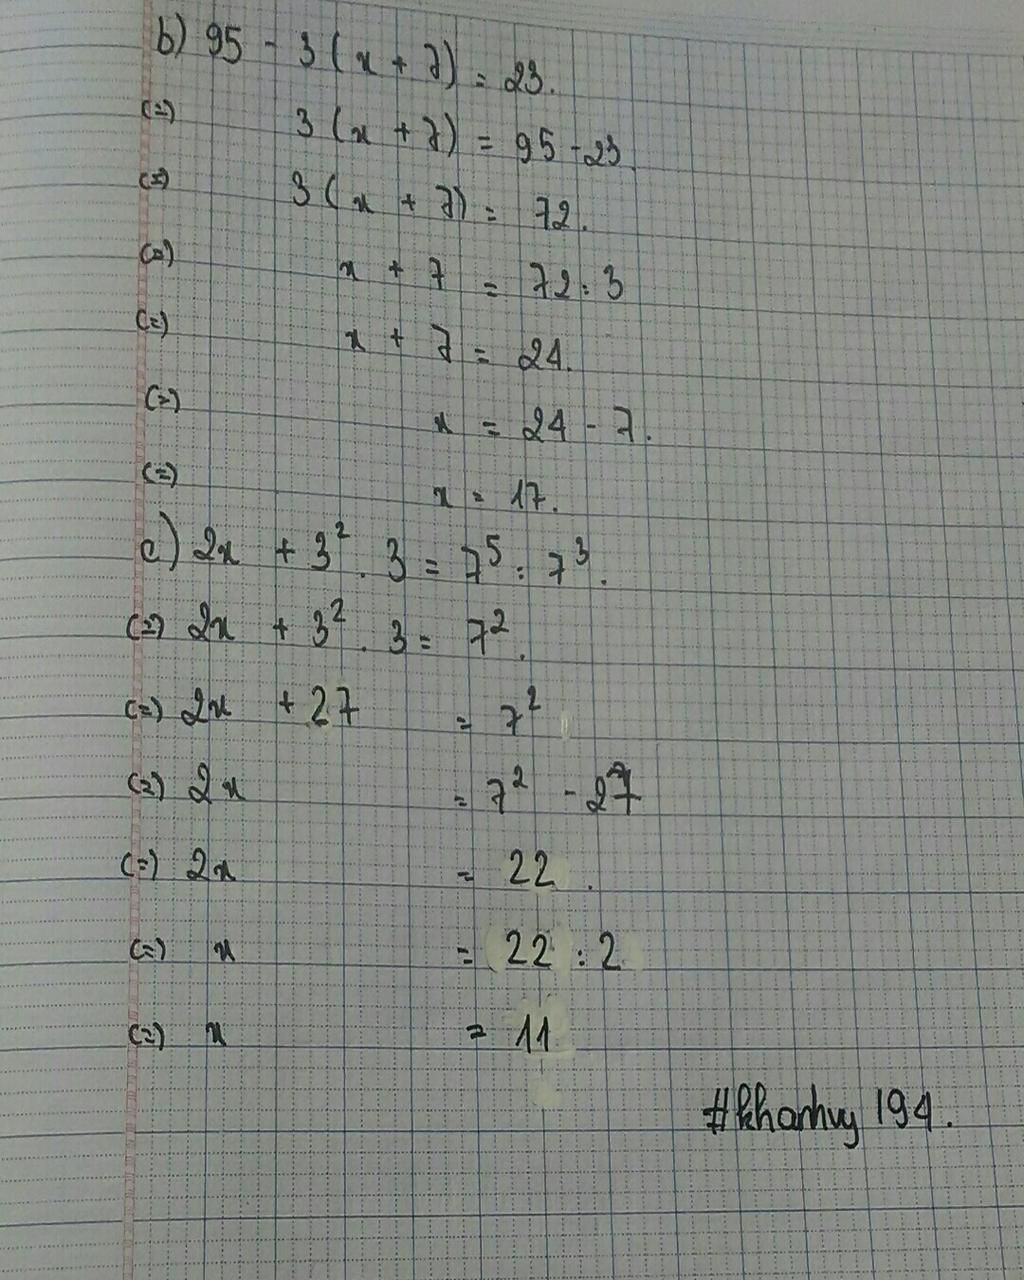 b) 95 - 3(x + 7) = 23.
(=) 3(x + 7) = 95 - 23
(=) 3(x + 7) = 72.
(=) x + 7 = 72 : 3
(=) x + 7 = 24.
(=) x = 24 - 7.
(=) x = 17.
c) 2x + 3² . 3 = 7⁵ : 7³.
(=) 2x + 3² . 3 = 7².
(=) 2x + 27 = 7²
(=) 2x = 7² - 27
(=) 2x = 22.
(=) x = 22 : 2
(=) x = 11
#khanhvy 194.